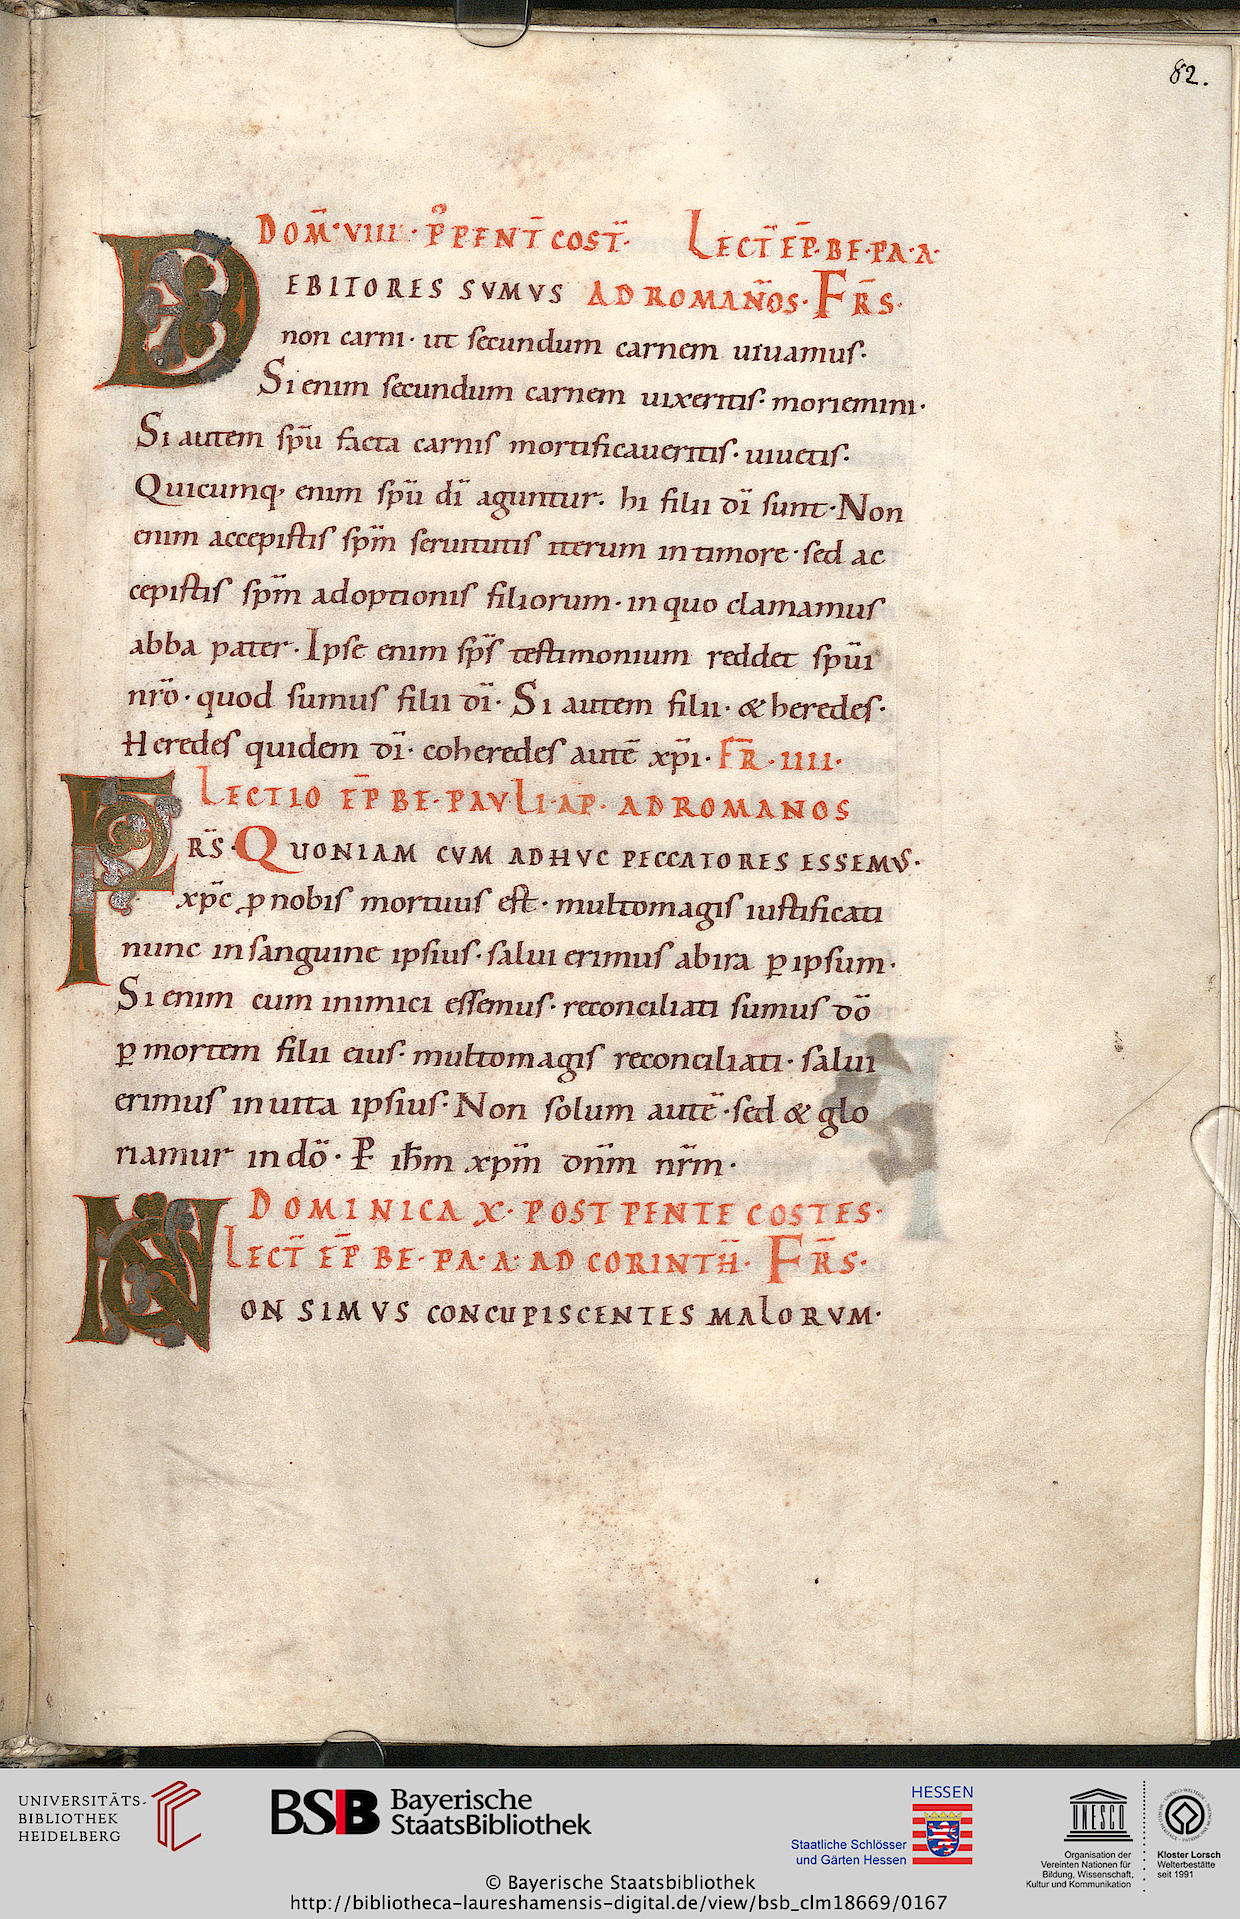 82.
DOM̅·VIIII· P̊ PENT̅COST̅· LECT̅ EP̅·BE·PA·A·
DEBITORES SVMVS AD ROMAN̅OS· FR̅S·
non carni· ut secundum carnem uiuamus·
Si enim secundum carnem uixeritis· moriemini·
Si autem sp̅u facta carnis mortificaueritis· uiuetis·
Quicumq· enim sp̅u di̅ aguntur· hi filii di̅ sunt· Non
enim accepistis sp̅m seruitutis iterum in timore· sed ac
cepistis sp̅m adoptionis filiorum· in quo clamamus
abba pater· Ipse enim sp̅s testimonium reddet sp̅ui
nr̅o· quod sumus filii di̅· Si autem filii· & heredes·
Heredes quidem di̅· coheredes aute̅ xp̅i· FR̅·IIII·
LECTIO EP̅ BE·PAVLI·AP· AD ROMANOS
FR̅S· QUONIAM CVM ADHVC PECCATORES ESSEMVS·
xp̅c ꝑ nobis mortuus est· multomagis iustificati
nunc in sanguine ipsius· salui erimus abira ꝑ ipsum·
Si enim cum inimici essemus· reconciliati sumus do̅
ꝑ mortem filii eius· multomagis reconciliati· salui
erimus in uita ipsius· Non solum aute̅· sed & glo
riamur in do̅· P̲ ih̅m xp̅m dn̅m nr̅m·
DOMINICA X· POST PENTECOSTES·
LECT̅ EP̅ BE·PA·A· AD CORINTH̅· FR̅S·
NON SIMVS CONCUPISCENTES MALORVM·
UNIVERSITÄTS-
BIBLIOTHEK
HEIDELBERG
BSB Bayerische
StaatsBibliothek
HESSEN
Staatliche Schlösser
und Gärten Hessen
UNESCO
Organisation der
Vereinten Nationen für
Bildung, Wissenschaft,
Kultur und Kommunikation
Kloster Lorsch
Welterbestätte
seit 1991
© Bayerische Staatsbibliothek
http://bibliotheca-laureshamensis-digital.de/view/bsb_clm18669/0167